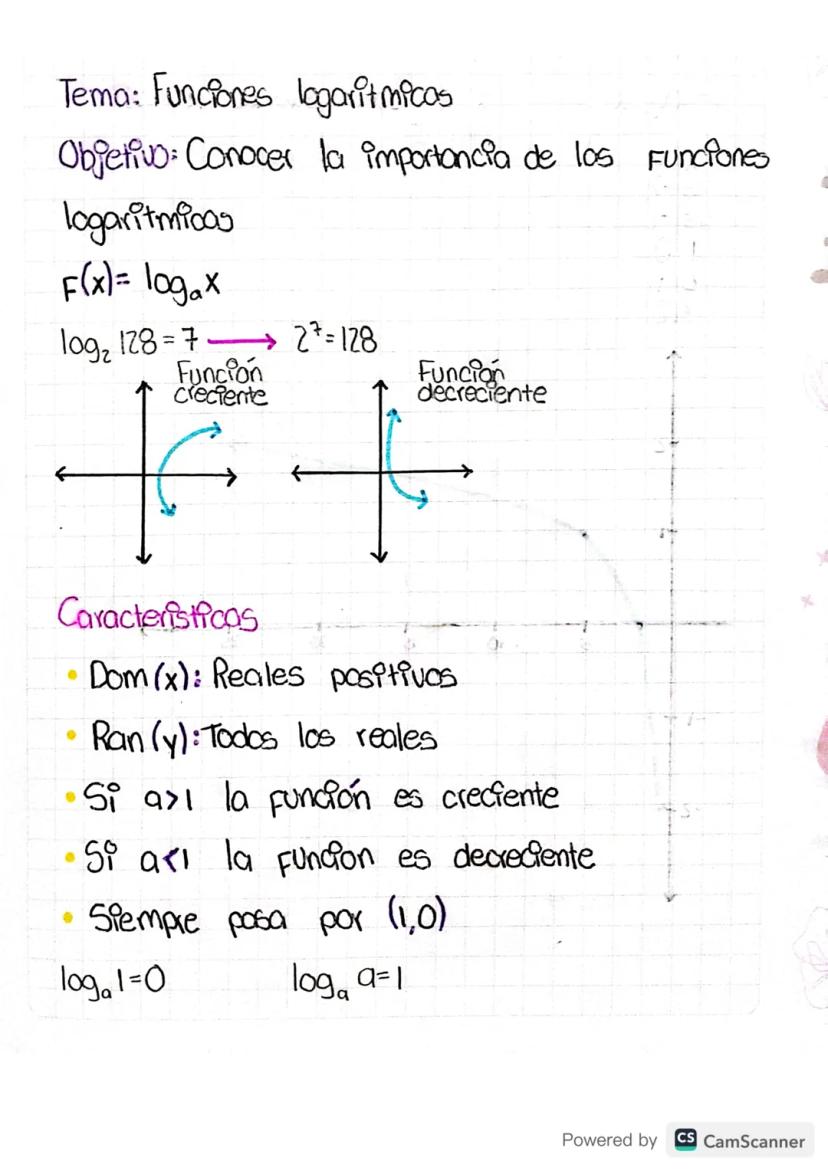 Tema: Funciones logaritmicas
Objetivo: Conocer la importancia de las funciones
logaritmicas
F(x)= logₐx
log₂ 128 = 7 → 2⁷ = 128
Función
creciente
Función
decreciente
Características
• Dom (x): Reales positivos
• Ran (y): Todos los reales
• Si a>1 la función es creciente
• Si a<1 la funcion es decreciente
• Siempre pasa por (1,0)
logₐ 1=0 logₐ a=1
Powered by CS CamScanner